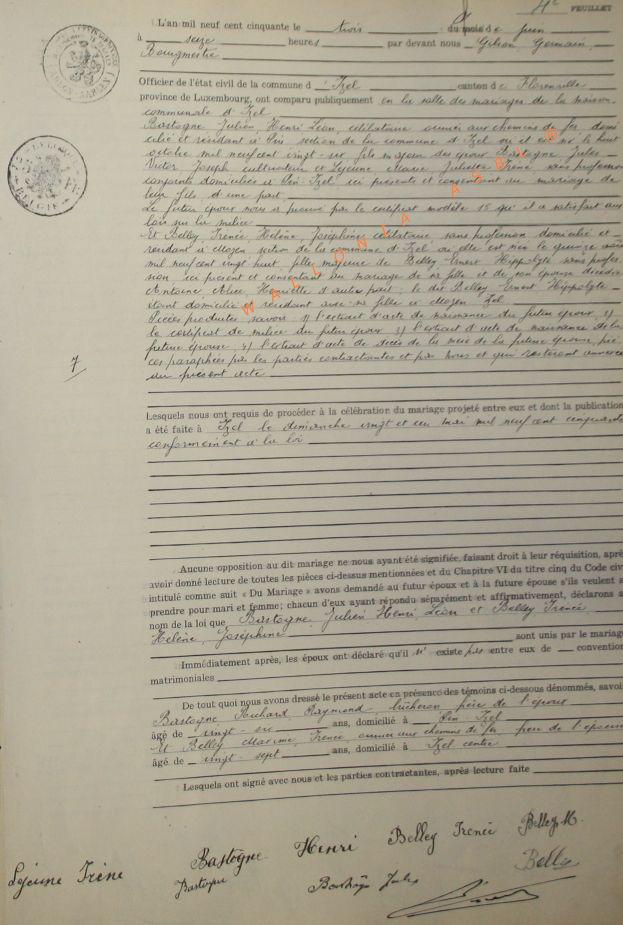 4e FEUILLET
L'an mil neuf cent cinquante le trois du mois de juin
à seize heures par devant nous Gilson Germain,
Bourgmestre
Officier de l'état civil de la commune d'Izel canton de Florenville
province de Luxembourg, ont comparu publiquement en la salle des mariages de la maison
communale d'Izel
Bastogne Julien, Henri Léon, célibataire ouvrier aux chemins de fer domi
cilié et résidant à Pin section de la commune d'Izel où il est né le huit
octobre mil neuf cent vingt-six fils majeur des époux Bastogne Jules
Victor Joseph cultivateur et Lejeune Marie Juliette Irène, sans profession
conjoints domiciliés à Pin-Izel, ici présents et consentant au mariage de
leur fils d'une part
Le futur époux nous a prouvé par le certificat modèle 15 qu'il a satisfait aux
lois sur la milice
Et Belley Irenée, Hélène, Joséphine célibataire sans profession domiciliée et
résidant à Moyen section de la commune d'Izel où elle est née le quinze
mil neuf cent vingt huit, fille majeure de Belley Ernest Hippolyte sans profes
sion, ici présent et consentant au mariage de sa fille et de son épouse décédée
Antoine Alice, Henriette d'autre part; le dit Belley Ernest Hippolyte
étant domicilié et résidant avec sa fille à Moyen Izel
Pièces produites, savoir: 1) l'extrait d'acte de naissance du futur époux 2)
le certificat de milice du futur époux 3) l'extrait d'acte de naissance de la
future épouse; 4) l'extrait d'acte de décès de la mère de la future épouse, piè
ces paraphées par les parties contractantes et par nous et qui resteront annexées
au présent acte
7
Lesquels nous ont requis de procéder à la célébration du mariage projeté entre eux et dont la publication
a été faite à Izel le dimanche vingt et un mai mil neuf cent cinquante
conformément à la loi
Aucune opposition au dit mariage ne nous ayant été signifiée, faisant droit à leur réquisition, après
avoir donné lecture de toutes les pièces ci-dessus mentionnées et du Chapitre VI du titre cinq du Code civ
intitulé comme suit « Du Mariage » avons demandé au futur époux et à la future épouse s'ils veulent s
prendre pour mari et femme; chacun d'eux ayant répondu séparément et affirmativement, déclarons a
nom de la loi que Bastogne, Julien Henri, Léon et Belley Irenée
Hélène, Joséphine sont unis par le mariage
Immédiatement après, les époux ont déclaré qu'il n'existe pas entre eux de convention
matrimoniales
De tout quoi nous avons dressé le présent acte en présence des témoins ci-dessous dénommés, savoir
Bastogne Richard Raymond bûcheron frère de l'époux
âgé de vingt-six ans, domicilié à Pin-Izel
Et Belley Maxime, Irenée ouvrier aux chemins de fer frère de l'épouse
âgé de vingt-sept ans, domicilié à Izel centre
Lesquels ont signé avec nous et les parties contractantes, après lecture faite
Lejeune Irène Bastogne Henri Belley Irenée Belley M.
Bastogne Bastogne Jules Belley
WALLONIA ASBL